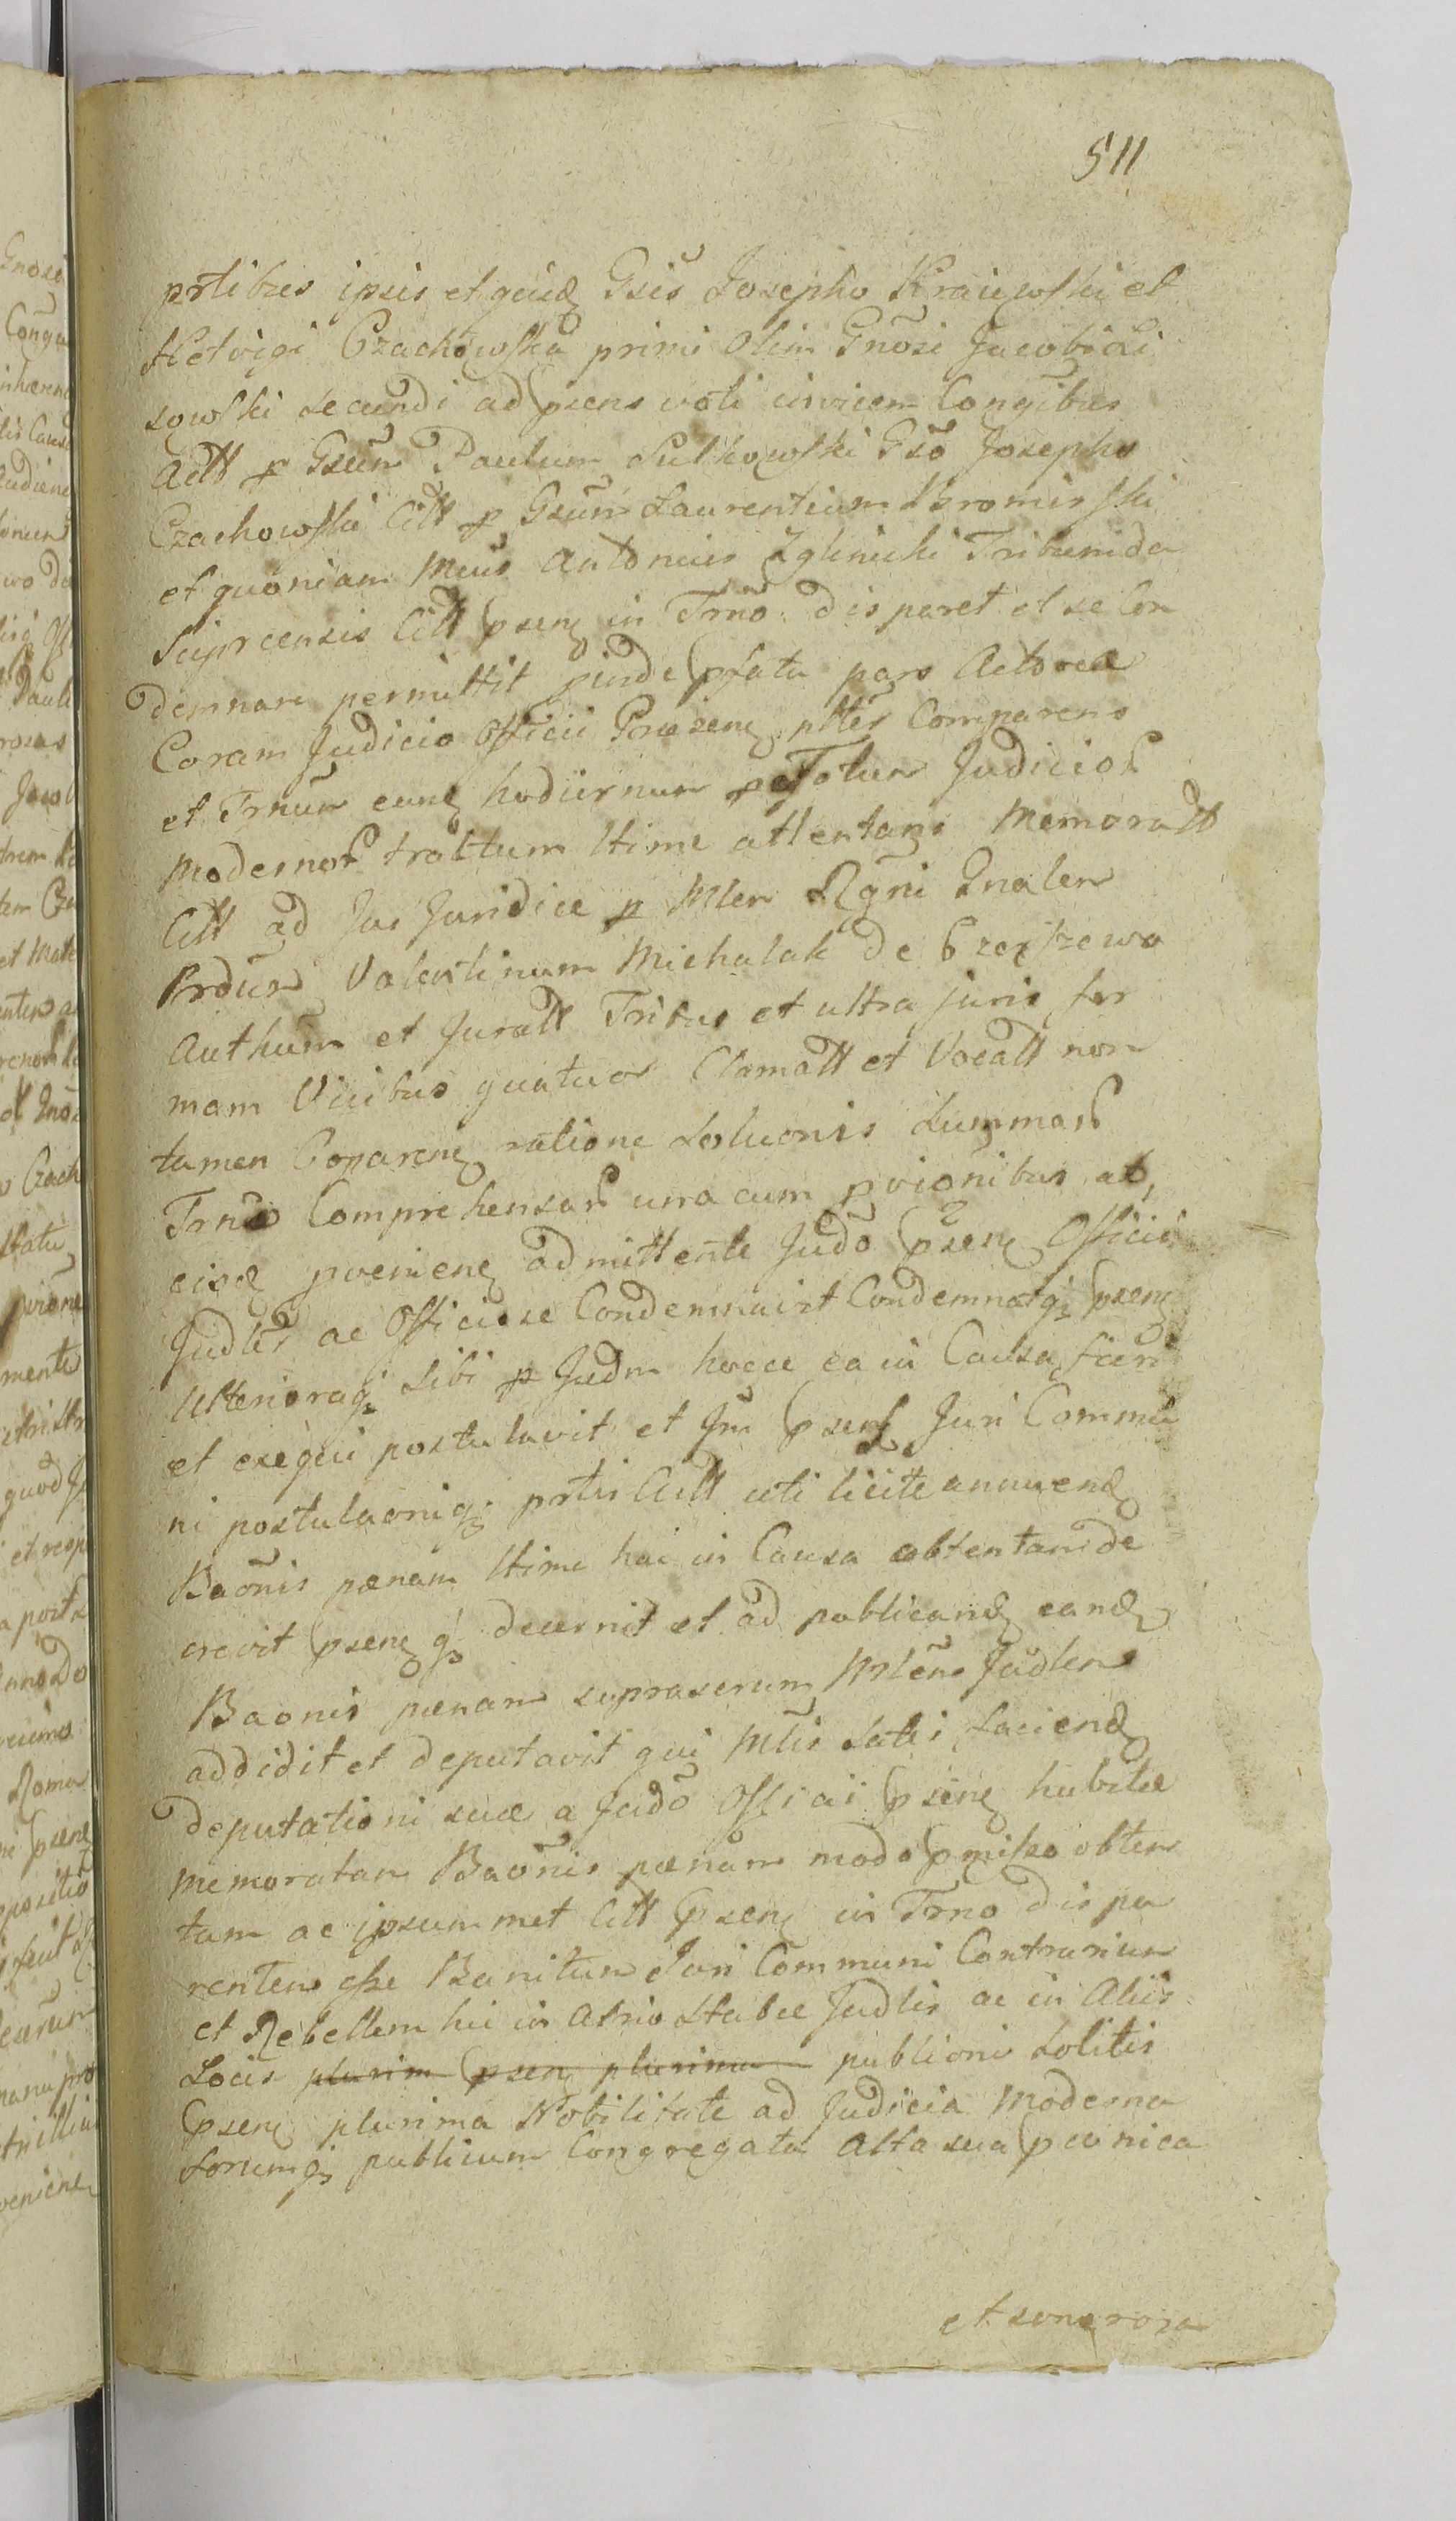 511
prtibus ipsis et quidē Gsis Josepho Kraiewski et
Hetvigi Czachowska primi olim Gnosi Jacobi Li
sowski secundi ad psens voti invicem Congibus
Actt p Gsum Paulum Sulkowski Gso Josepho
Czachowski Citt p Gsum Laurentium Skromirski
et quoniam Mcus Antonius Zglinicki Tribunida
Sierpcensis Citt psens in Trno disparet et se Con
demnare permittit proinde pfata pars Actorea
Coram Judicio Officii Praesens pltter Comparens
et Trnum eund hodiernum p Totum Judicior
Modernor tractum ltime attentans Memoratt
Citt ad Jus Juridice p Mlem Rgni Gnalem
Prdum Valentinum Michalak de
Authum et Juratt Tribus et ultra juris for
mam Vicibus quatuor Clamatt et Vocatt non
tamen Coparens ratione Soluonis Summar
Trno Comprehensar una cum pvionibus ab
eisd proveniens admittente Judo psens Officii
Judltr ac Officiose Condemnavit Condemnatq psens
Ulterioraq sibi p Judm hocce ea in Causa fieri
et exequi postulavit et Jm psens Juri Commu
ni postulaoniq prtis Actt uti licite annuend
Baonis paenam ltime hac in Causa obtentam de
crevit psensq decernit et ad publicand eand
Baonis paenam suprascrum Mlem Judlem
addidit et deputavit qui Mlis Satis faciend
deputationi suae a Judo Officii psens habitae
memoratam Baonis paenam modo pmisso obten
tam ac ipsummet Citt psens in Trno dispa
rentem esse Banitum Juri Communi Contrarium
et Rebellem hic in atrio Stubae Judlis ac in Aliis
Locis plurim psens plurima publioni Solitis
psens plurima Nobilitate ad Judicia Moderna
forumq publicum Congregata Alta sua pconica
et sonorosa